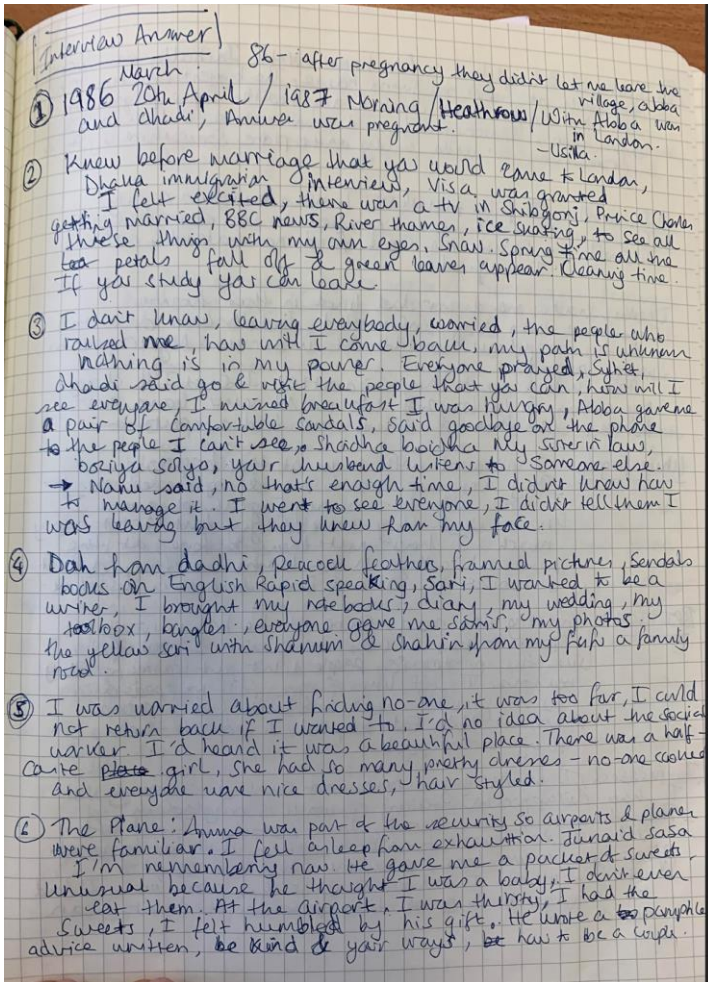 Interview Answer
86 - after pregnancy they didn't let me leave the
village, abba
March
① 1986 20th April / 1987 Morning / Heathrow / With Abba was
in London.
and dhadi, Amma was pregnant.
② Knew before marriage that you would come to London,
Dhaka immigration interview, Visa was granted
I felt excited, there was a tv in Shibgonj, Prince Charles
getting married, BBC news, River thames, ice skating, to see all
these things with my own eyes. Snow. Spring time all the
petals fall off & green leaves appear. Cleaning time.
If you study you can leave.
③ I don't know, leaving everybody, worried, the people who
raised me, how will I come back, my path is unknown
nothing is in my power. Everyone prayed, Sylhet,
dhadi said go & visit the people that you can, how will I
see everyone, I missed breakfast I was hungry, Abba gave me
a pair of comfortable sandals, said goodbye on the phone
to the people I can't see, Shadha boidha my sister in law,
boziya soliyo, your husband listens to someone else.
→ Nanu said, no that's enough time, I didn't know how
to manage it. I went to see everyone, I didn't tell them I
was leaving but they knew from my face.
④ Dah from dadhi, peacock feathers, framed pictures, Sandals
books on English Rapid speaking, Sari, I wanted to be a
writer, I brought my notebooks, diary, my wedding, my
box, bangles, everyone gave me saris, my photos.
the yellow sari with Shanum & Shahin from my fufu a family
⑤ I was worried about finding no-one, it was too far, I could
not return back if I wanted to. I'd no idea about the social
worker. I'd heard it was a beautiful place. There was a half-
caste girl, she had so many pretty dresses - no-one cooked
and everyone wore nice dresses, hair styled.
⑥ The Plane: Amma was part of the security so airports & planes
were familiar. I fell asleep from exhaustion. Junaid sasa
I'm remembering now. He gave me a packet of sweets.
Unusual because he thought I was a baby, I don't even
eat them. At the airport, I was thirsty, I had the
sweets, I felt humbled by his gift. He wrote a pamphlet
advice written, be kind & your ways, how to be a couple.